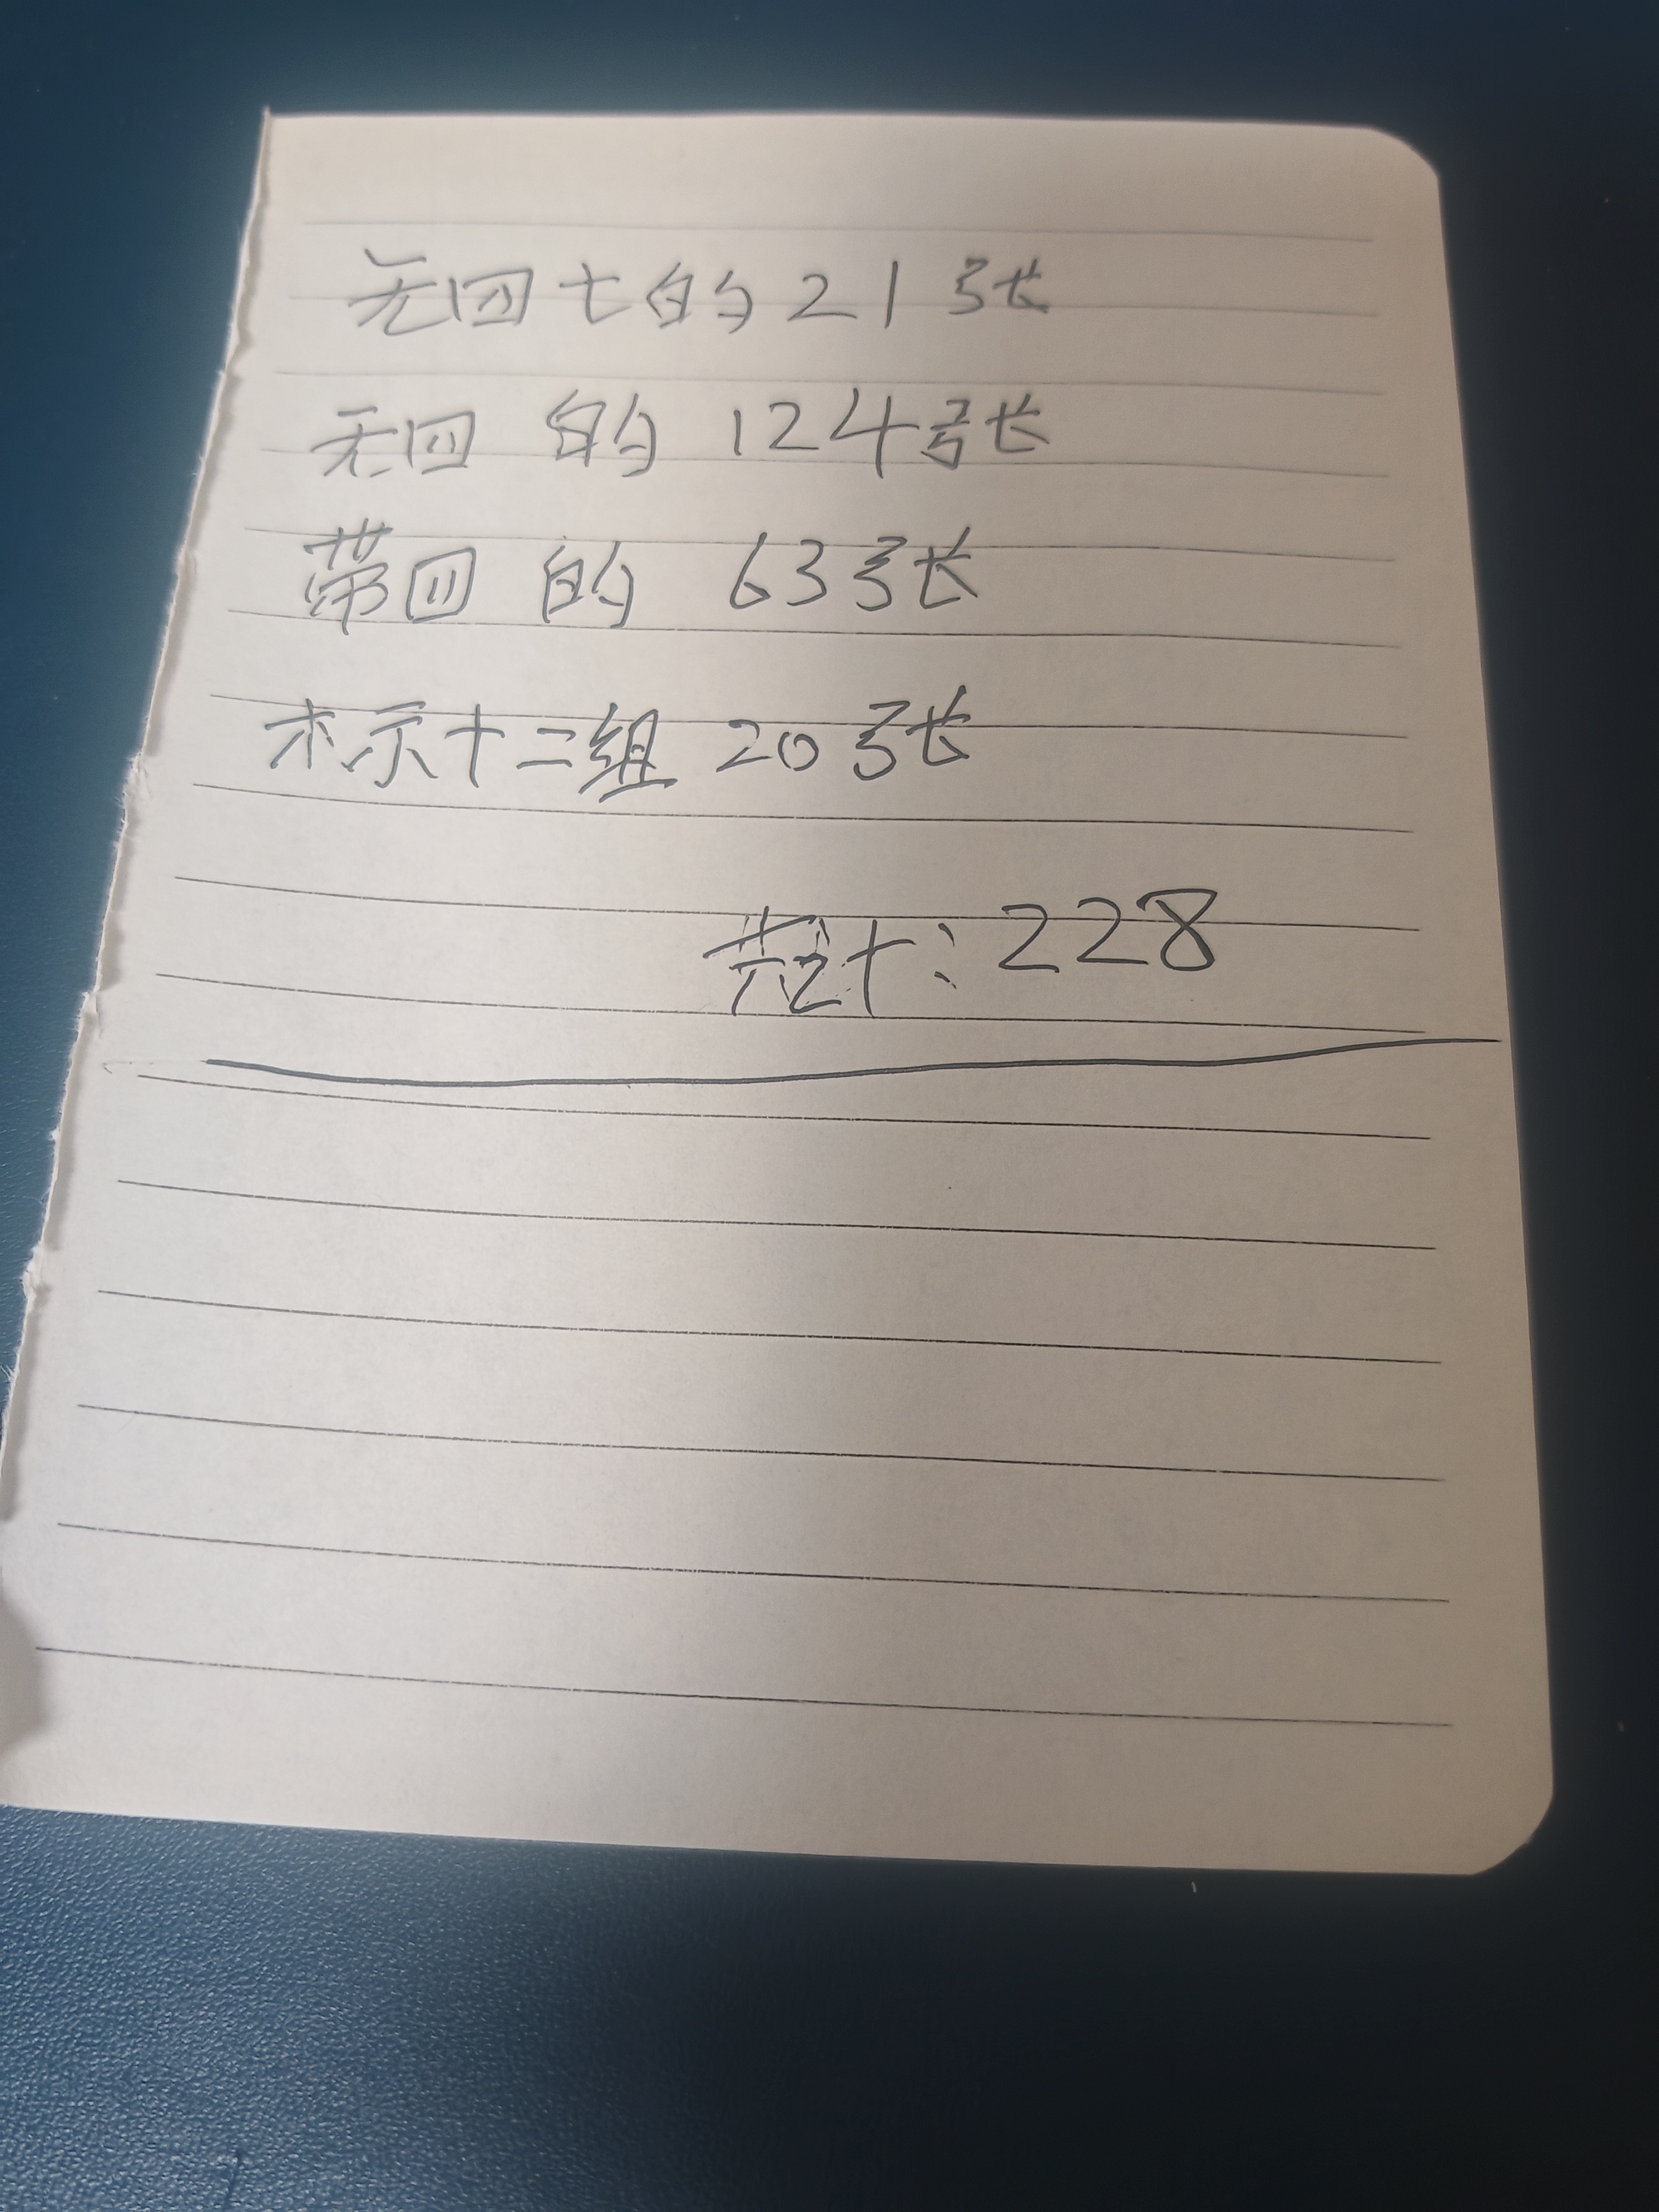 无四七的21张
无四的124张
带四的63张
标十二组20张
共计:228